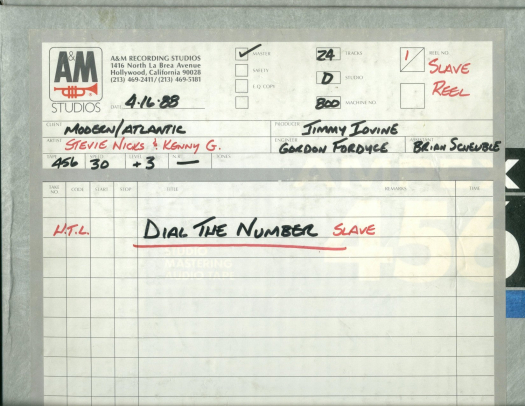 A&M
STUDIOS
A&M RECORDING STUDIOS
1416 North La Brea Avenue
Hollywood, California 90028
(213) 469-2411/(213) 469-5181
DATE 4-16-88
MASTER
SAFETY
E.Q. COPY
24 TRACKS
D STUDIO
800 MACHINE NO.
1/ REEL NO.
SLAVE
REEL
CLIENT MODERN/ATLANTIC
PRODUCER JIMMY IOVINE
ARTIST STEVIE NICKS & KENNY G.
ENGINEER GORDON FORDYCE
ASSISTANT BRIAN SCHEUBLE
TAPE 456 SPEED 30 LEVEL +3 N.R. — TONES
TAKE NO. CODE START STOP TITLE REMARKS TIME
N.T.L. DIAL THE NUMBER SLAVE
MASTERING
AUDIO TAPE
456